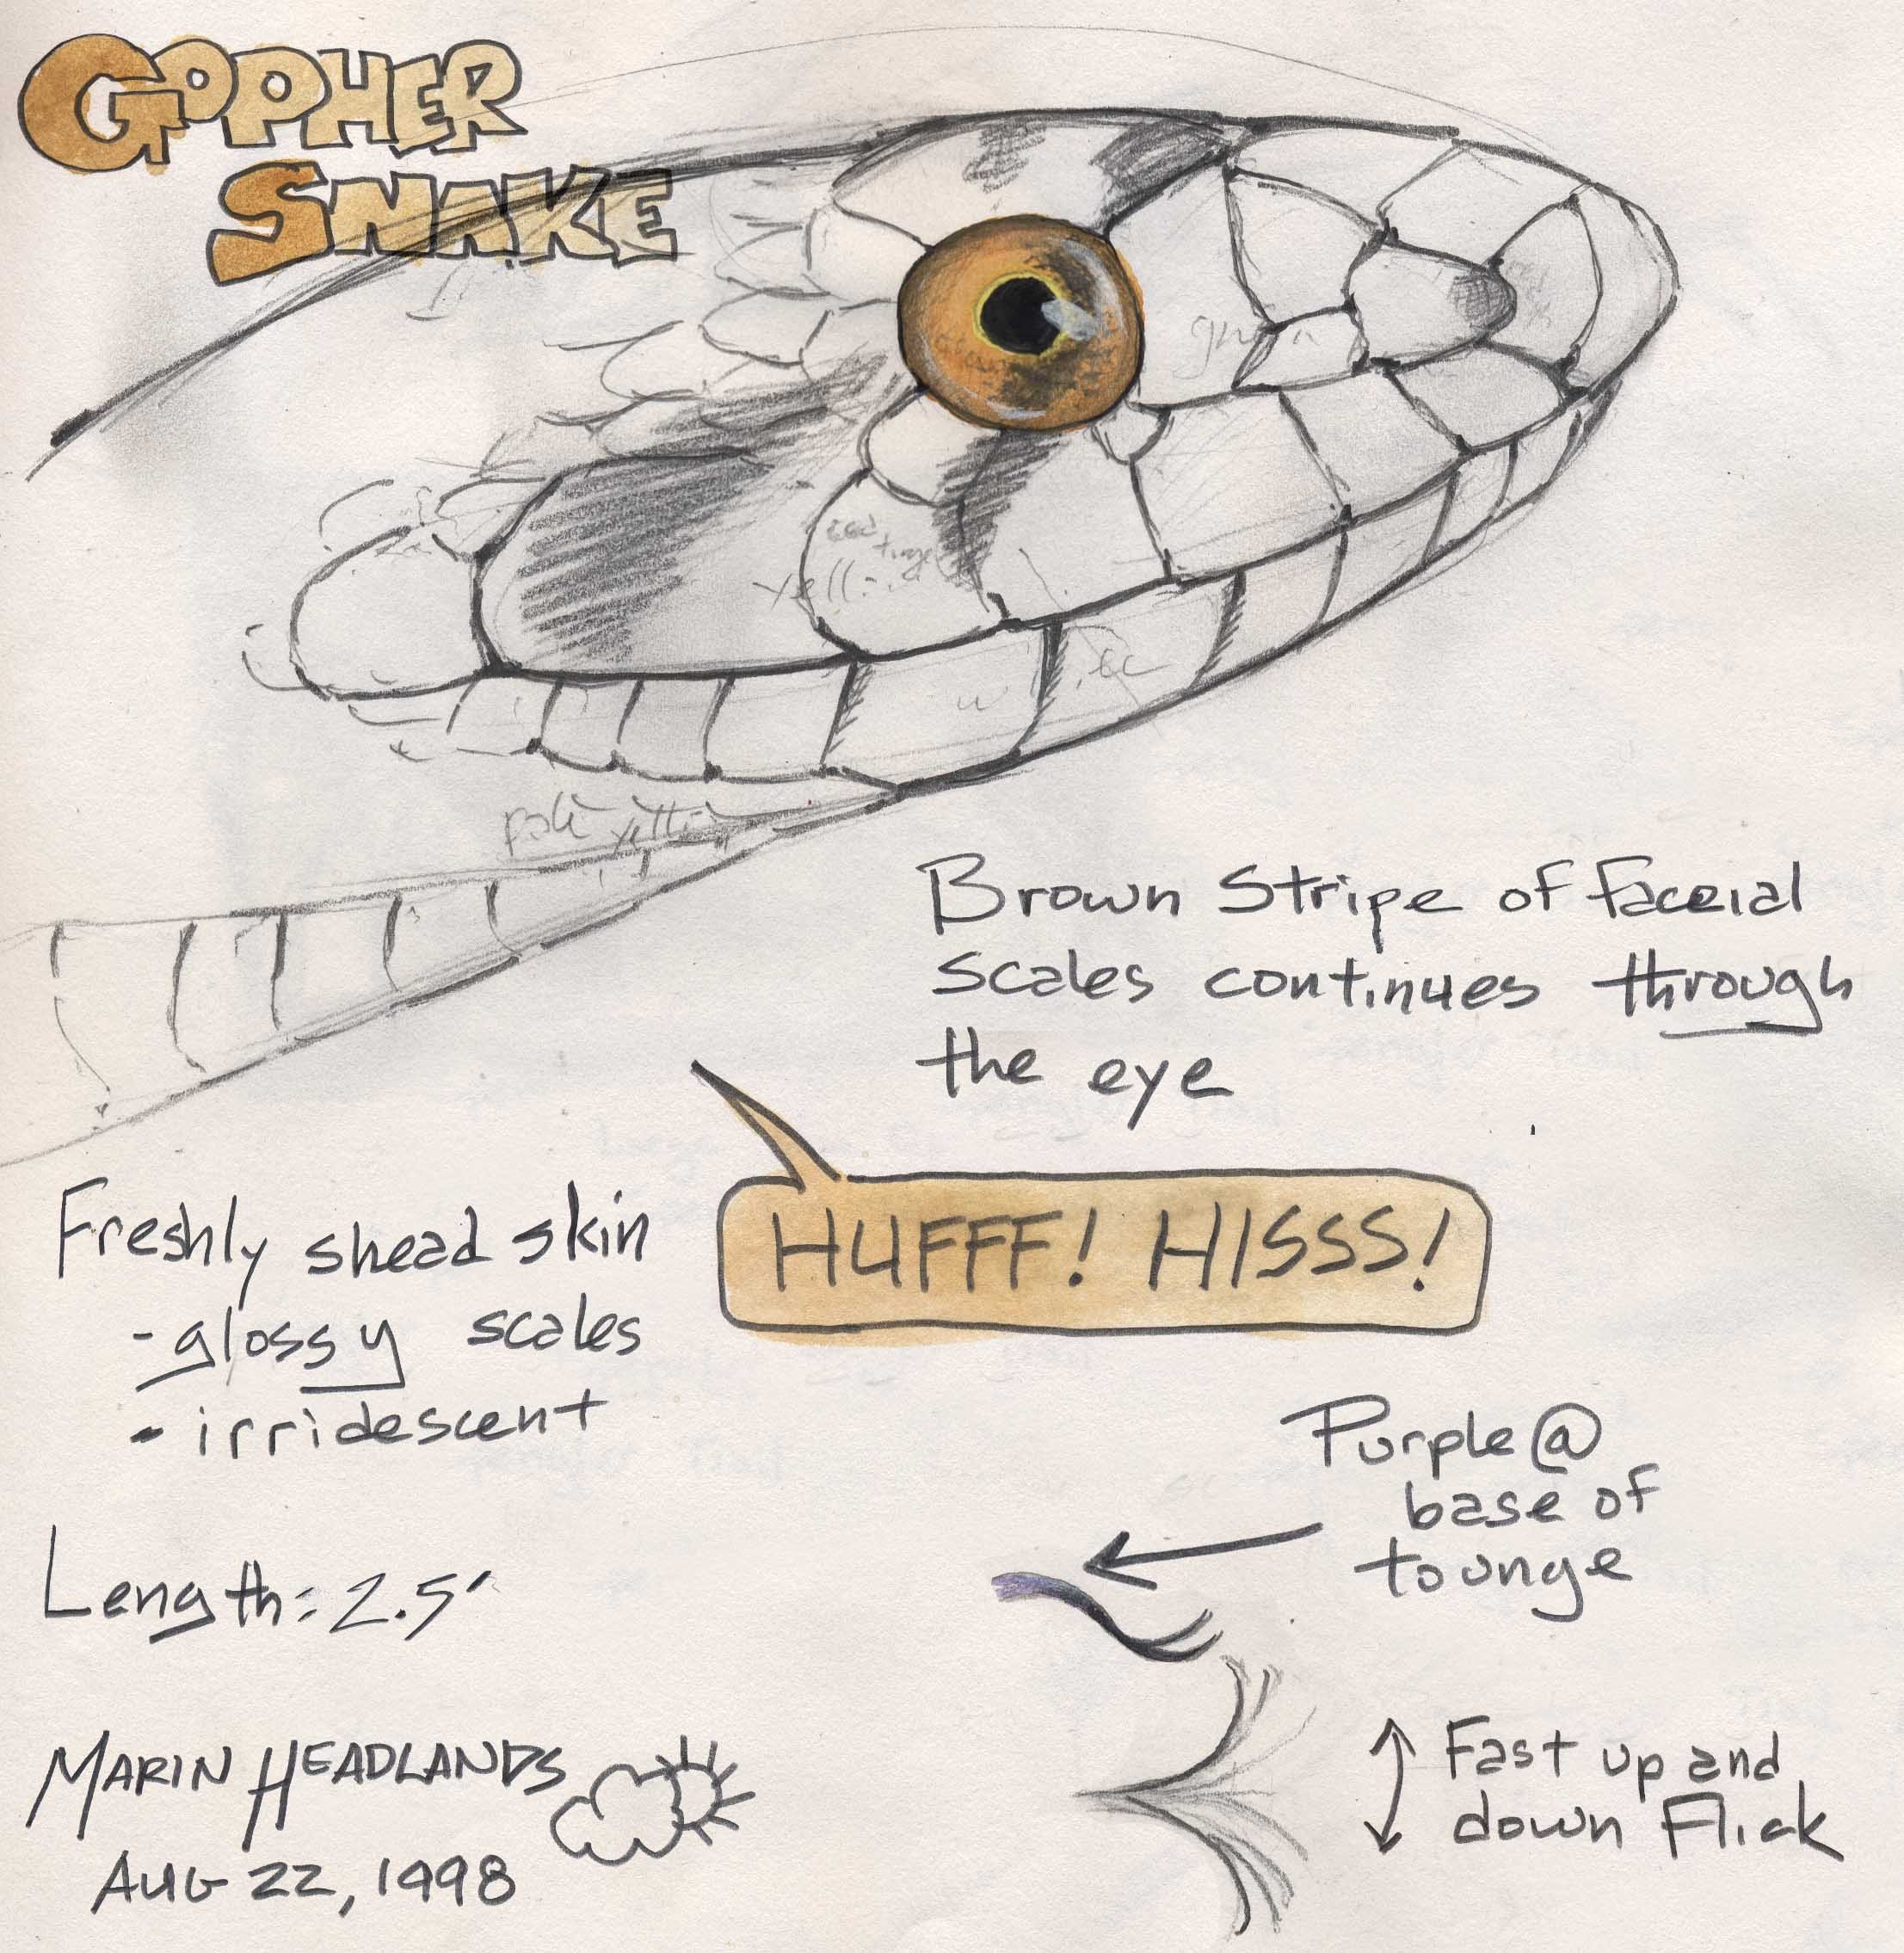 GOPHER
SNAKE
red
tinge
yell
pale yell
Brown Stripe of faceial
scales continues through
the eye
HUFFF! HISSS!
Freshly shead skin
-glossy scales
- irridescent
Length: 2.5'
Purple @
base of
tounge
Fast up and
down Flick
MARIN HEADLANDS
AUG 22, 1998